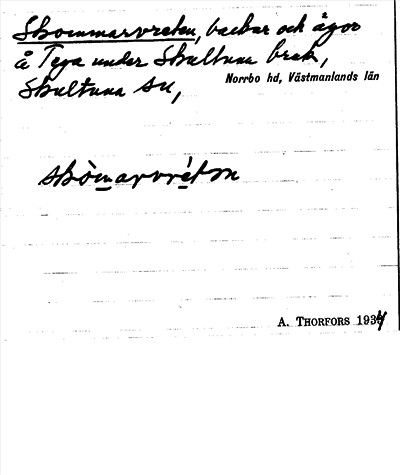 Skommarvreten, backar och ägor
å Tega under Skultuna bruk,
Skultuna sn,
Norrbo hd, Västmanlands län
skòmarvrétṇ
A. THORFORS 1934